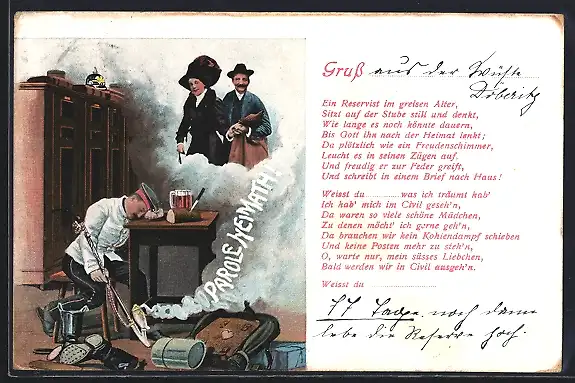 PAROLE HEIMATH!
Gruß aus der Wüste
Döberitz
Ein Reservist im greisen Alter,
Sitzt auf der Stube still und denkt,
Wie lange es noch könnte dauern,
Bis Gott ihn nach der Heimat lenkt;
Da plötzlich wie ein Freudenschimmer,
Leucht es in seinen Zügen auf.
Und freudig er zur Feder greift,
Und schreibt in einem Brief nach Haus!
Weisst du ............ was ich träumt hab'
Ich hab' mich im Civil geseh'n,
Da waren so viele schöne Mädchen,
Zu denen möcht' ich gerne geh'n,
Da brauchen wir kein Kohlendampf schieben
Und keine Posten mehr zu steh'n,
O, warte nur, mein süsses Liebchen,
Bald werden wir in Civil ausgeh'n.
Weisst du ........................
77 Tage noch dann
lebe die Reserve hoch.